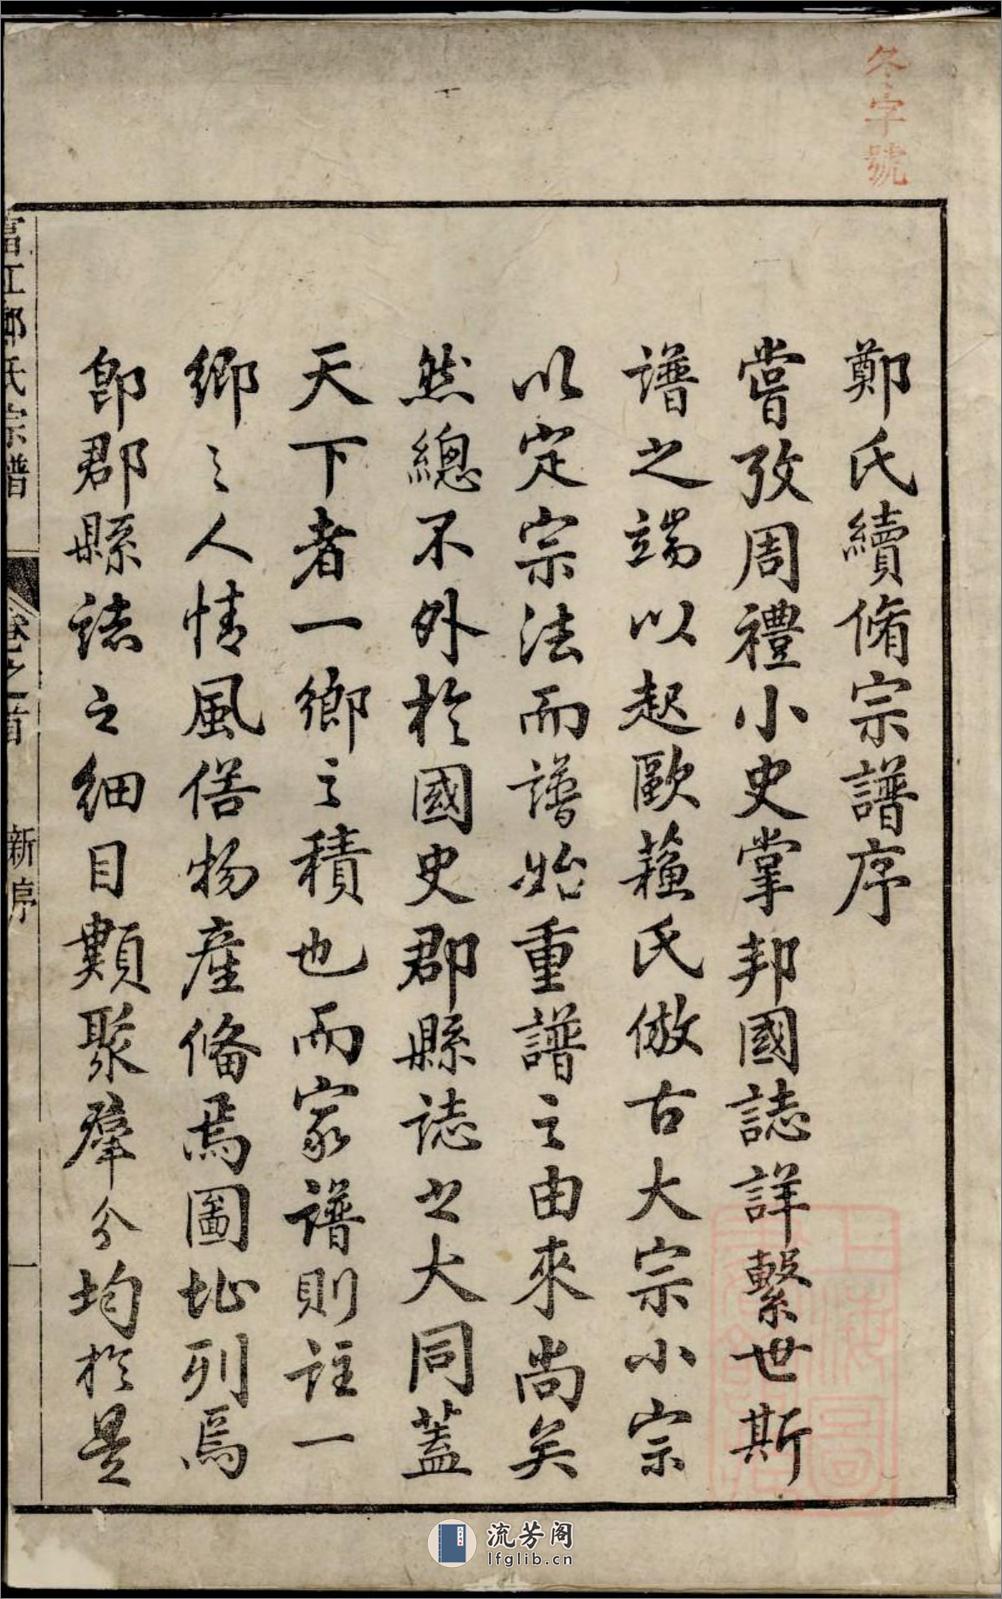 冬字號
鄭氏續脩宗譜序
嘗攷周禮小史掌邦國誌詳繫世斯
譜之端以起歐蘓氏倣古大宗小宗
以定宗法而譜始重譜之由來尚矣
然總不外於國史郡縣誌之大同蓋
天下者一鄉之積也而家譜則註一
鄉之人情風俗物產俻焉圖址列焉
即郡縣誌之細目類聚羣分均於是
富江鄭氏宗譜
卷之首
新序
一
流芳阁
lfglib.cn